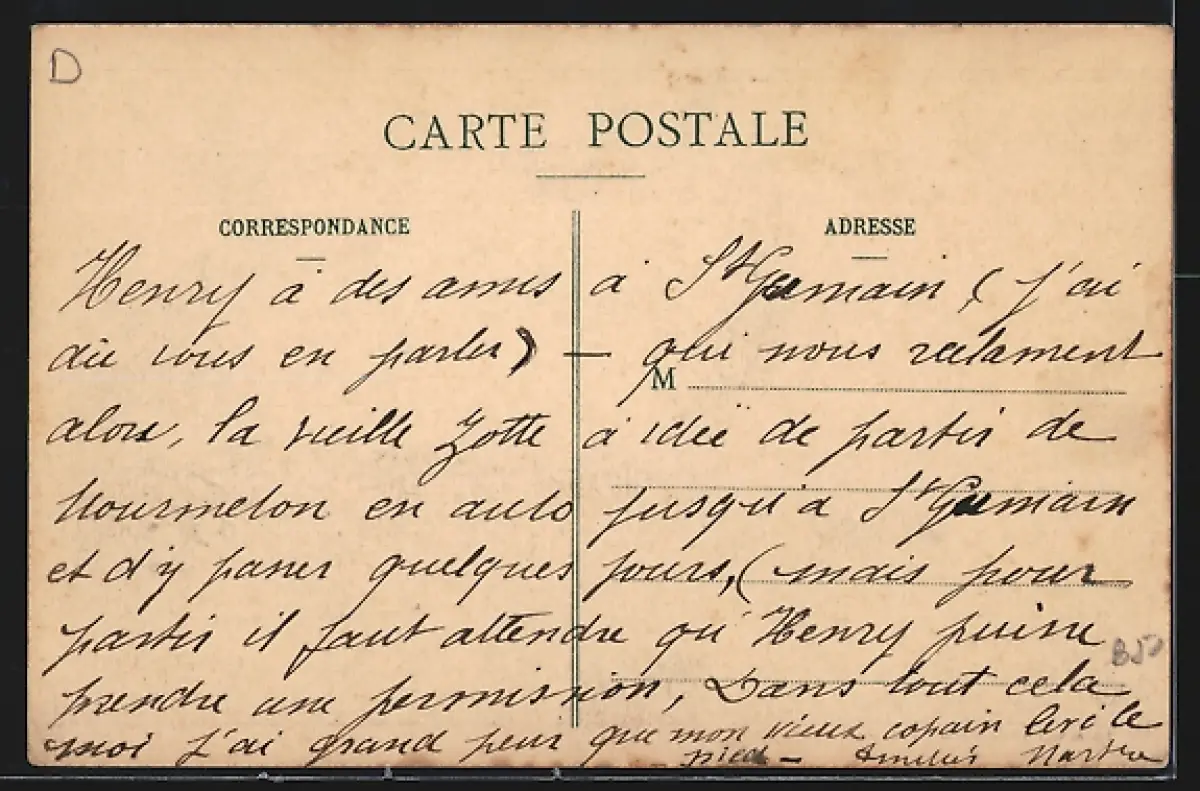 D
CARTE POSTALE
CORRESPONDANCE
ADRESSE
Henry à des amis à St Germain (j'ai
dû vous en parler) — qui nous réclament
M
alors, la vieille Zotte à idée de partir de
Mourmelon en auto jusqu'à St Germain
et d'y passer quelques jours, (mais pour
partir il faut attendre qu'Henry puisse
prendre une permission, Dans tout cela
moi j'ai grand peur que mon vieux copain levé le
pied — Amitiés